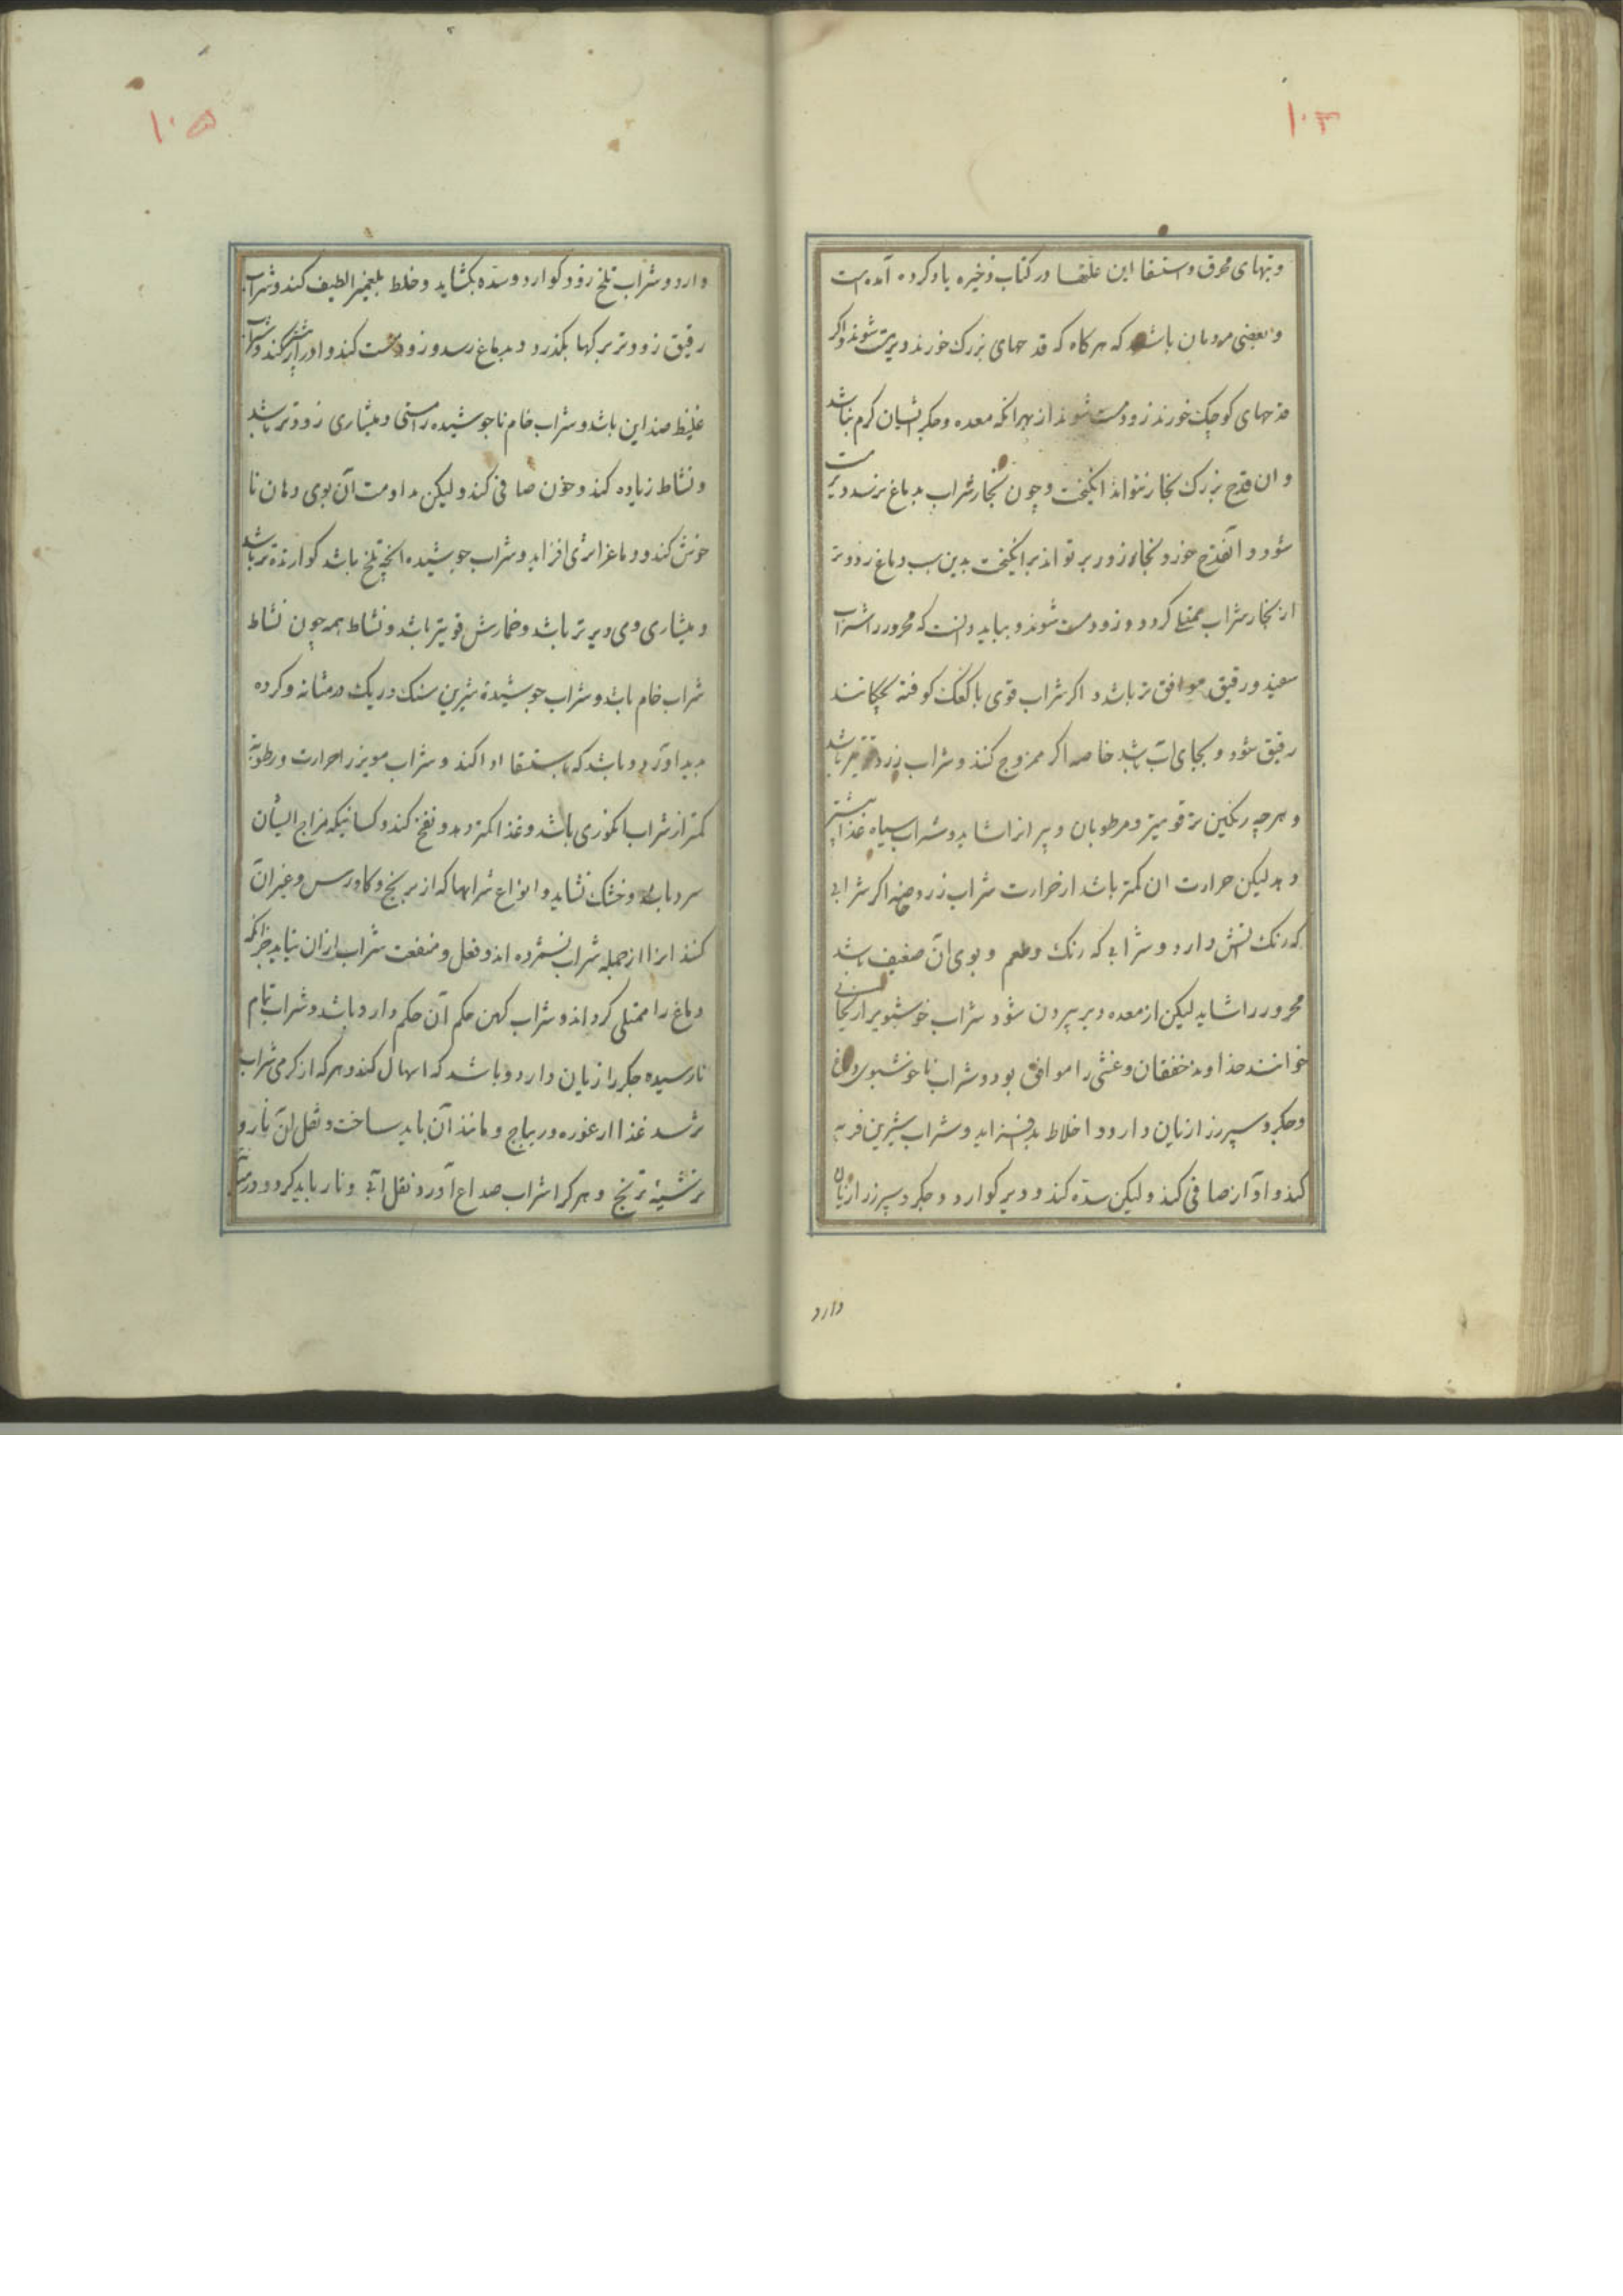 ۱۰۳
وتبهای محرق و استسقا این علتها در کتاب ذخیره یاد کرده آمده است
و بعضی مردمان باشد که هرکاه که قدحهای بزرک خورند دیر مست شوند و اکر
قدحهای کوچک خورند زود مست شوند از بهر انکه معده و جکر ایشان کرم نباشد
و ان قدح بزرک بخار نتواند انکیخت و چون بخار شراب بدماغ نرسد دیر مست
شود و آنقدح خورد بخار زودتر تواند بر انکیخت بدین سبب دماغ زودتر
از بخار شراب ممتلی کردد و زود مست شوند و بباید دانست که محرور را شراب
سفید و رقیق موافق تر باشد و اکر شراب قوی با کعک کوفته بچکانند
رقیق شود و بجای آب باشد خاصه اکر ممزوج کنند و شراب زرد باشد
و هرچه رنکین تر قویتر و مرطوبان و پیرانرا شاید و شراب سیاه غذا بیشتر
دهد لیکن حرارت ان کمتر باشد از حرارت شراب زرد اکر شرابی
که رنک دارد و شرابی که رنک و طعم و بوی آن ضعیف باشد
محرور را شاید لیکن از معده دیر بیرون شود شراب خوشبوی را ریحانی
خوانند خداوند خفقان و غشی را موافق بود و شراب ناخوشبوی دماغ
و جکر و سپرز را زیان دارد و اخلاط بد فزاید و شراب شیرین فربه
کند و آواز صافی کند ولیکن سده کند و دیر کوارد و جکر و سپرز را زیان
دارد
۱۰۵
دارد و شراب تلخ زود کوارد و سده بکشاید و خلط بلغمیرا لطیف کند و شراب
رقیق زودتر برکها بکذرد و بدماغ رسد و زود مست کند و ادرار بیشتر کند و شراب
غلیظ ضد این باشد و شراب خام ناجوشیده را مستی و هشیاری زودتر باشد
و نشاط زیاده کند و خون صافی کند ولیکن مداومت آن بوی دهان نا
خوش کند و دماغ را تری افزاید و شراب جوشیده انچه تلخ باشد کوارنده تر باشد
و هشیاری وی دیرتر باشد و خمارش قویتر باشد و نشاط همچون نشاط
شراب خام باشد و شراب جوشیده شیرین سنک و ریک در مثانه و کرده
پدید آورد و باشد که باستسقا ادا کند و شراب مویز را حرارت و رطوبت
کمتر از شراب انکوری باشد و غذا کمتر دهد و نفخ کند و کسانیکه مزاج ایشان
سرد باشد و خشک نشاید و انواع شرابها که از برنج و کاورس و غیر آن
کنند انرا از جمله شراب نشمرده اند و فعل و منفعت شراب از ان نیاید جز انکه
دماغ را ممتلی کرداند و شراب کهن حکم آن حکم دارو باشد و شراب تمام
نارسیده جکر را زیان دارد و باشد که اسهال کند و هرکه از کرمی شراب
ترسد غذا از غوره و ریباج و مانند آن باید ساخت و نقل ان نار و
ترشینه ترنج و هرکرا شراب صداع آورد نقل آبی و نار باید کرد